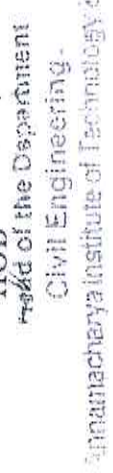 HOD
Head of the Department
Civil Engineering.
Annamacharya Institute of Technology